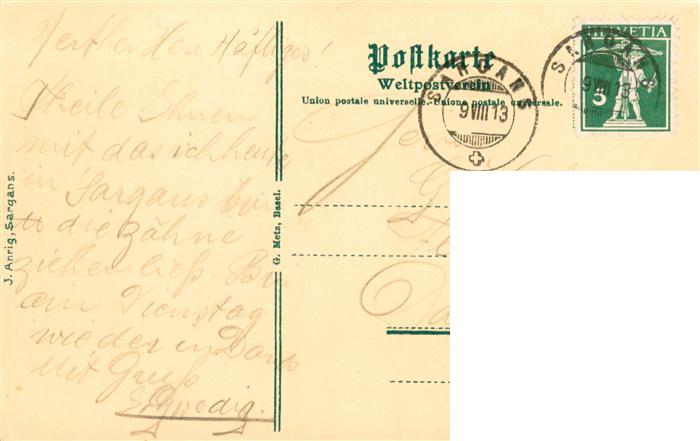 Werther Herr Häfliger!
Theile Ihnen
mit das ich heute
in Sargans bin
die zähne
ziehen ließ. Bin
am Dienstag
wieder in Davos
Mit Gruß
J. Anrig, Sargans.
G. Metz, Basel.
Postkarte
Weltpostverein
Union postale universelle. Unione postale universale.
SARGANS
9 VIII 13
HELVETIA
5
SARGANS
9 VIII 13